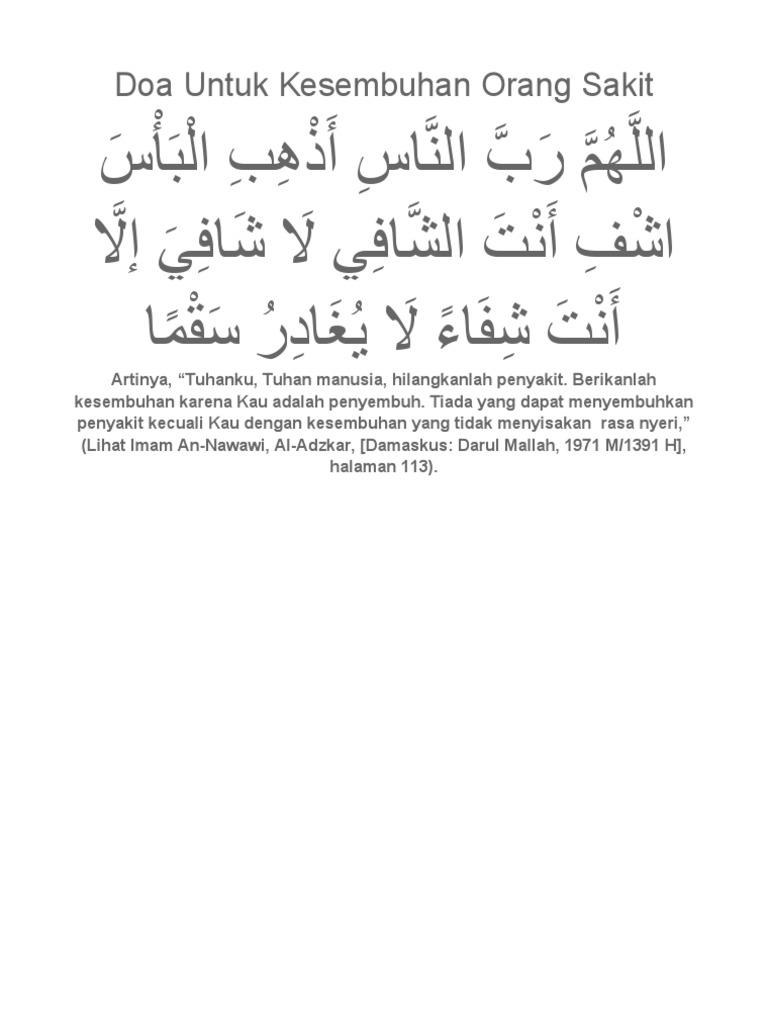 Doa Untuk Kesembuhan Orang Sakit
اللَّهُمَّ رَبَّ النَّاسِ أَذْهِبِ الْبَأْسَ
اشْفِ أَنْتَ الشَّافِي لَا شَافِيَ إلَّا
أَنْتَ شِفَاءً لَا يُغَادِرُ سَقْمًا
Artinya, “Tuhanku, Tuhan manusia, hilangkanlah penyakit. Berikanlah
kesembuhan karena Kau adalah penyembuh. Tiada yang dapat menyembuhkan
penyakit kecuali Kau dengan kesembuhan yang tidak menyisakan  rasa nyeri,”
(Lihat Imam An-Nawawi, Al-Adzkar, [Damaskus: Darul Mallah, 1971 M/1391 H],
halaman 113).